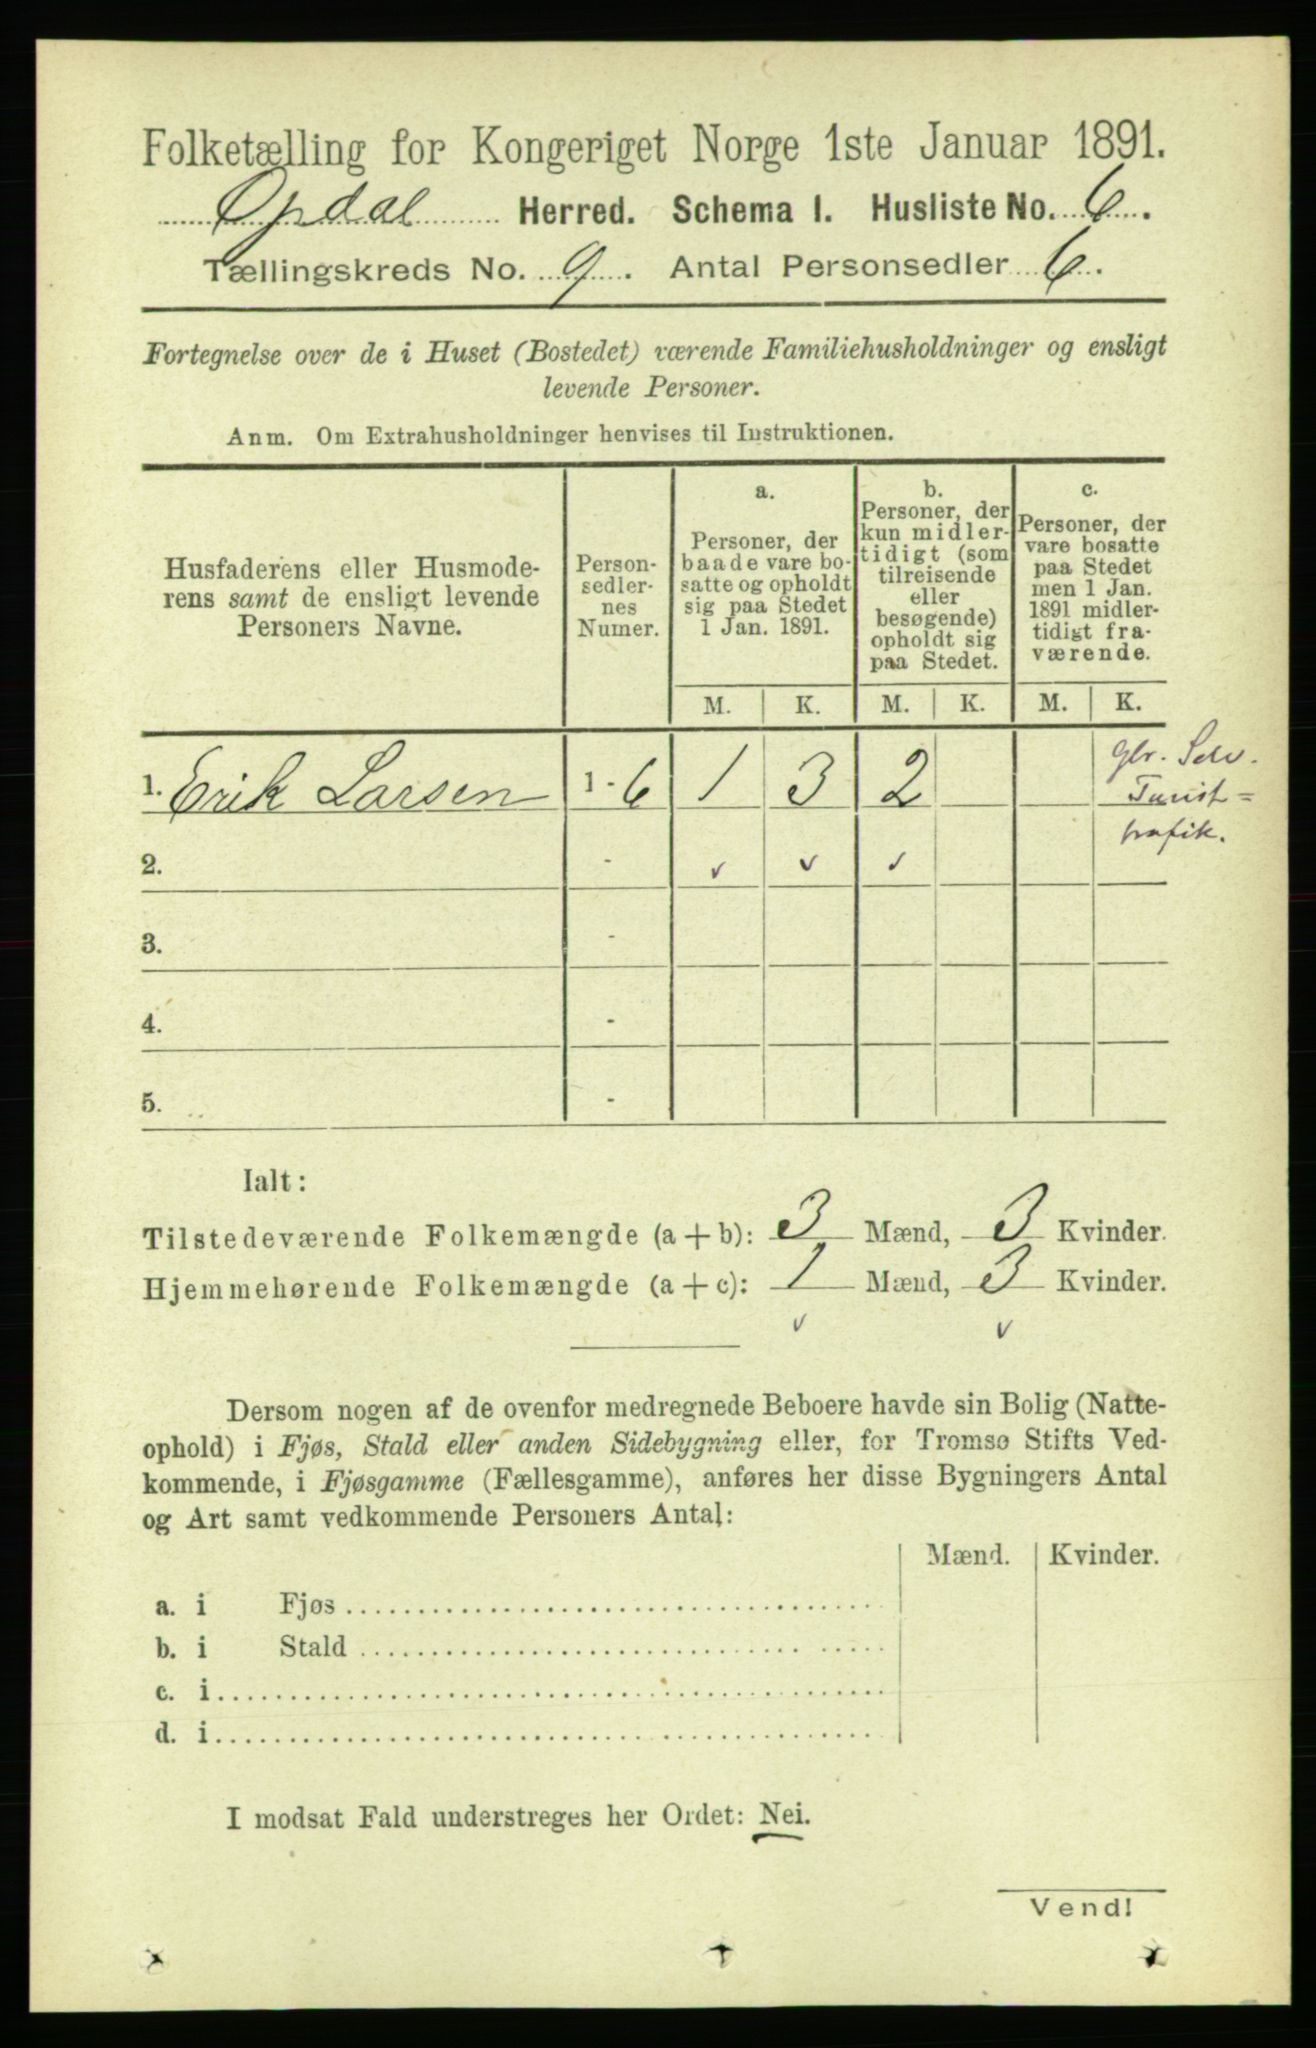 Folketælling for Kongeriget Norge 1ste Januar 1891.
Opdal Herred. Schema I. Husliste No. 6.
Tællingskreds No. 9. Antal Personsedler 6.
Fortegnelse over de i Huset (Bostedet) værende Familiehusholdninger og ensligt
levende Personer.
Anm. Om Extrahusholdninger henvises til Instruktionen.
Husfaderens eller Husmode-
rens samt de ensligt levende
Personers Navne.
Person-
sedler-
nes
Numer.
a.
Personer, der
baade vare bo-
satte og opholdt
sig paa Stedet
1 Jan. 1891.
b.
Personer, der
kun midler-
tidigt (som
tilreisende
eller
besøgende)
opholdt sig
paa Stedet.
c.
Personer, der
vare bosatte
paa Stedet
men 1 Jan.
1891 midler-
tidigt fra-
værende.
M. K. M. K. M. K.
1. Erik Larsen 1-6 1 3 2
Gbr. Selv.
Turist=
trafik.
2. - v v v
3. -
4. -
5. -
Ialt:
Tilstedeværende Folkemængde (a + b): 3 Mænd, 3 Kvinder.
Hjemmehørende Folkemængde (a + c): 1 Mænd, 3 Kvinder.
v v
Dersom nogen af de ovenfor medregnede Beboere havde sin Bolig (Natte-
ophold) i Fjøs, Stald eller anden Sidebygning eller, for Tromsø Stifts Ved-
kommende, i Fjøsgamme (Fællesgamme), anføres her disse Bygningers Antal
og Art samt vedkommende Personers Antal:
Mænd. Kvinder.
a. i Fjøs
b. i Stald
c. i
d. i
I modsat Fald understreges her Ordet: Nei.
Vend!